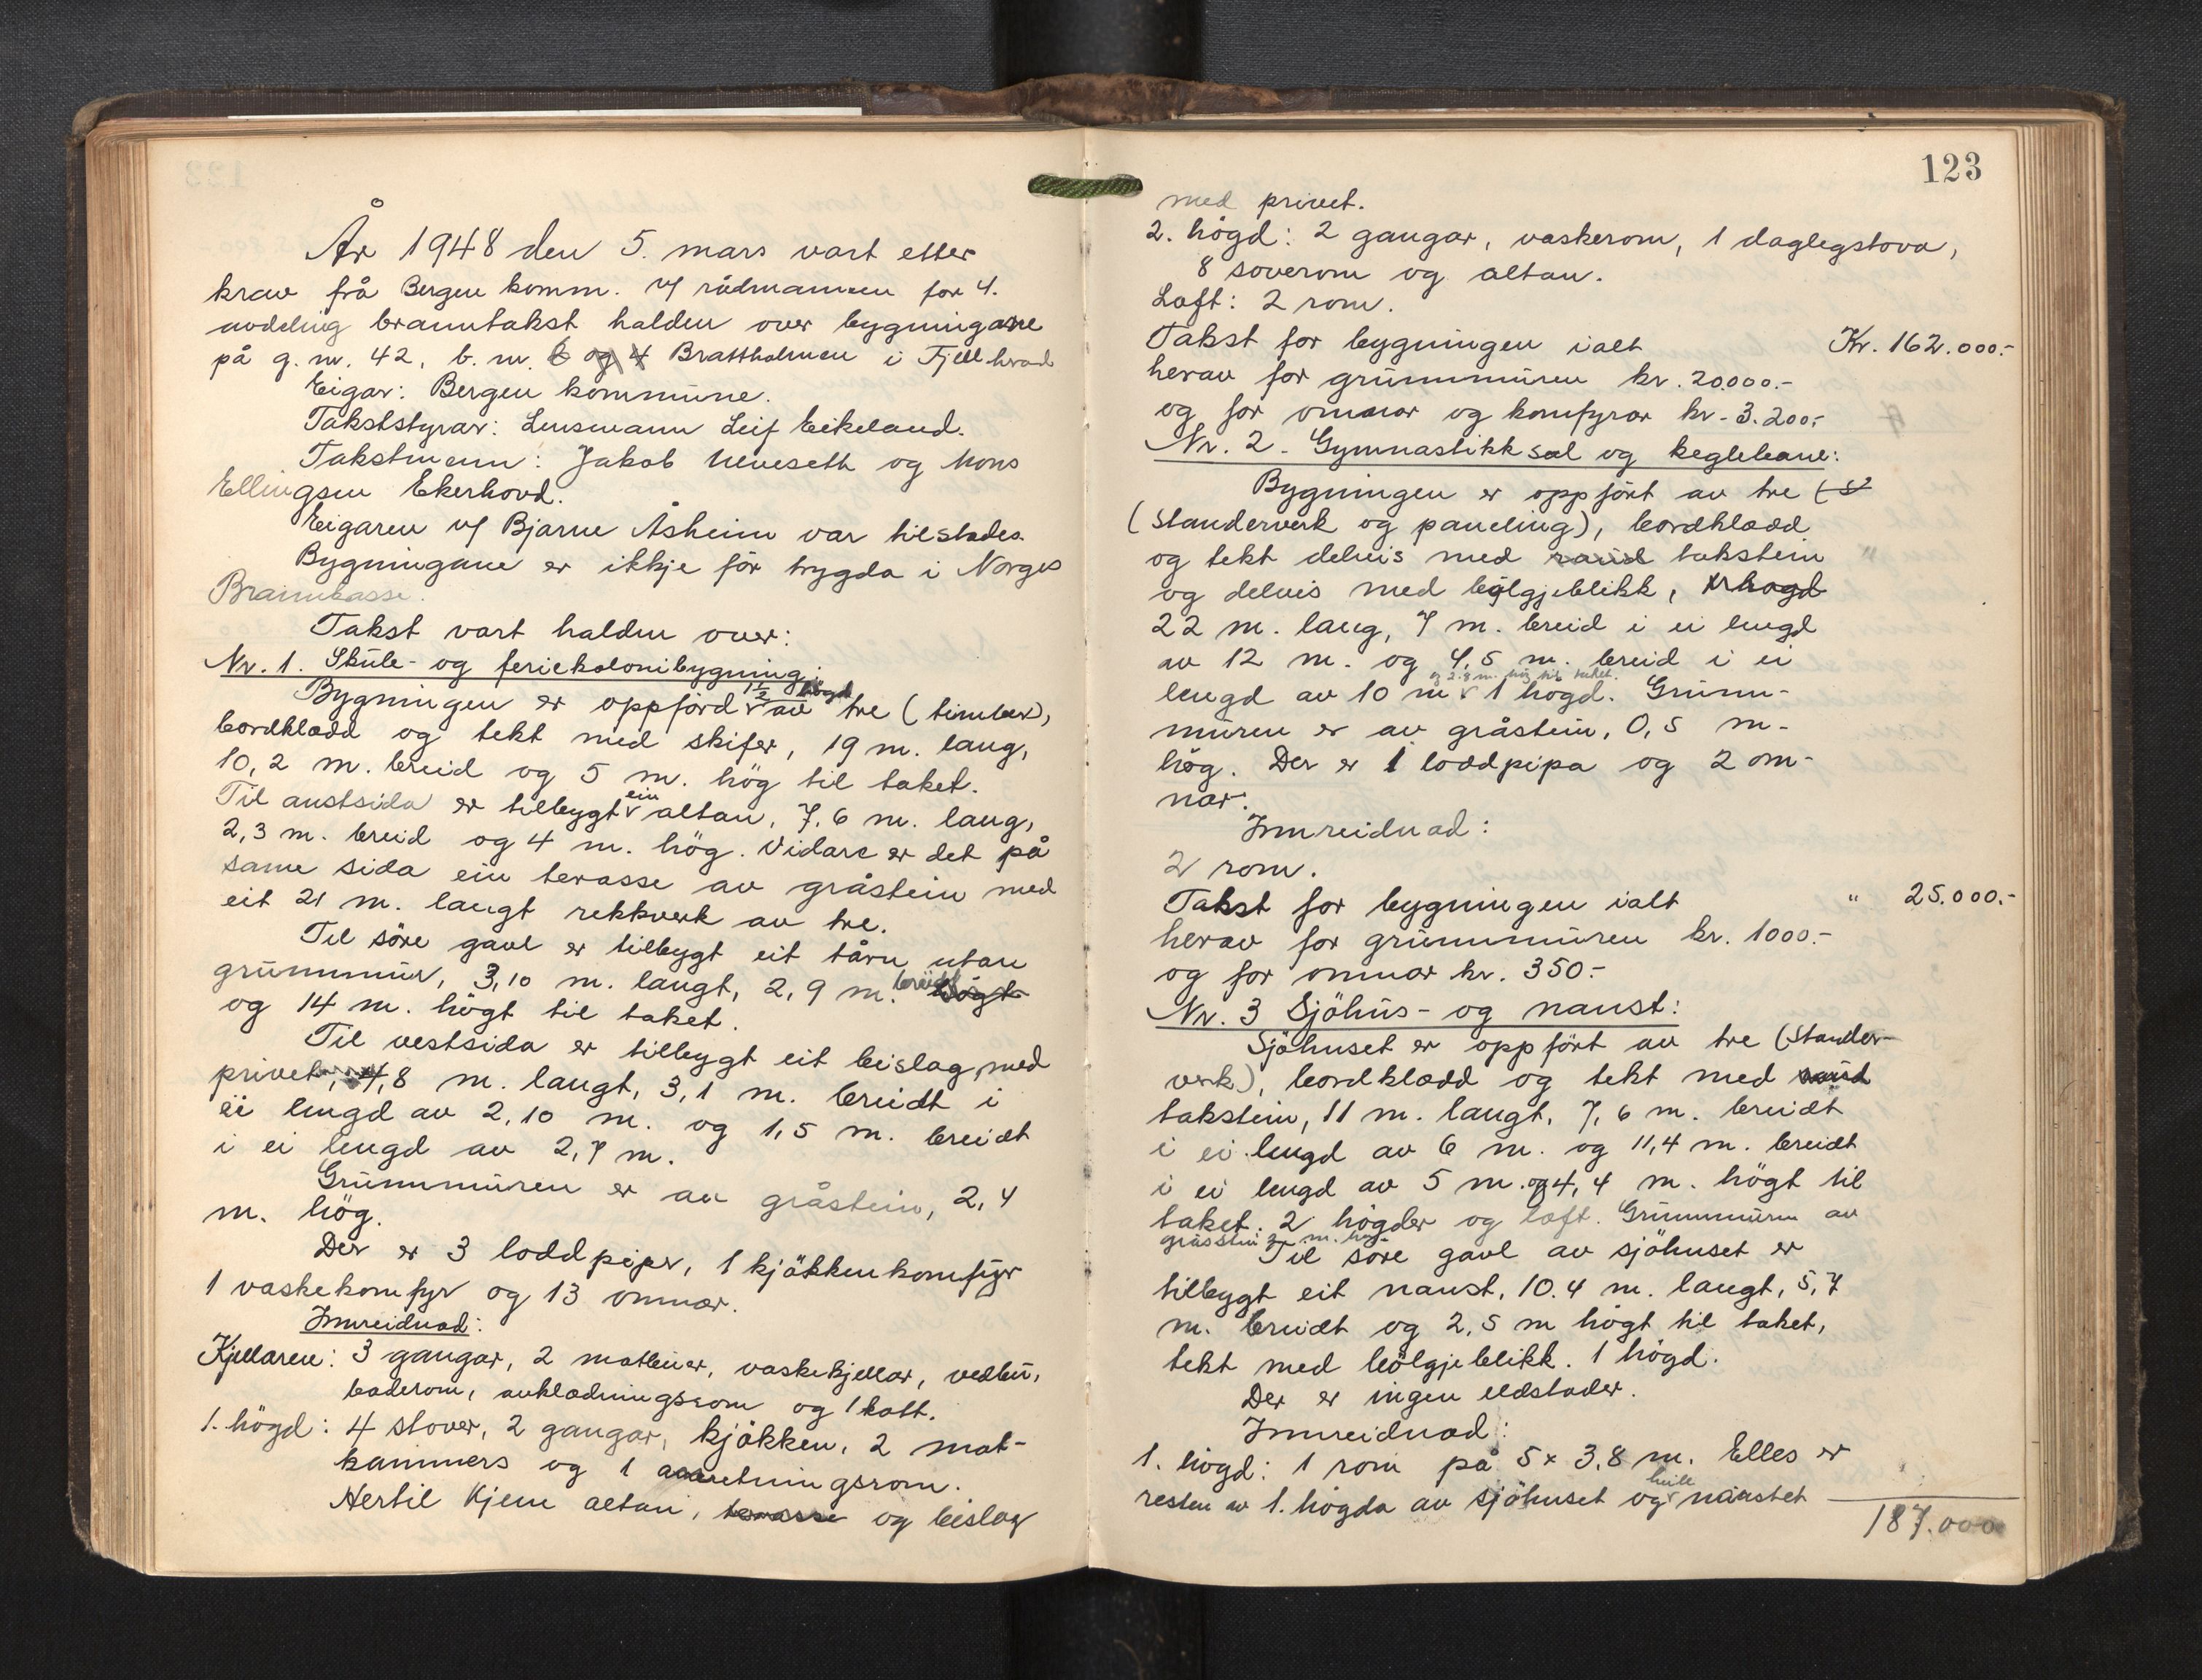 År 1948 den 5. mars vart etter
krav frå Bergen komm. v/ rådmannen for 4.
avdeling branntakst halden over bygningane
på g. nr. 42, b. nr. 6 og 4 Brattholmen i Fjell herad
Eigar: Bergen kommune.
Takststyrar: Lensmann Leif Eikeland.
Takstmenn: Jakob Ulveseth og Mons
Ellingsen Ekerhovd.
Eigaren v/ Bjarne Åsheim var tilstades.
Bygningane er ikkje för trygda i Norges
Brannkasse.
Takst vart halden over:
Nr. 1. Skule- og feriekolonibygning:
Bygningen er oppförd 1½ högd av tre (timber),
bordklædd og tekt med skifer, 19 m. lang,
10,2 m. breid og 5 m. hög til taket.
Til austsida er tilbygt ein altan, 7,6 m. lang,
2,3 m. breid og 4 m. hög. Vidare er det på
same sida ein terasse av gråstein med
eit 21 m. langt rekkverk av tre.
Til söre gavl er tilbygt eit tårn utan
grunnmur, 3,10 m. langt, 2,9 m. breidt högt
og 14 m. högt til taket.
Til vestsida er tilbygt eit beislag med
privet, 4,8 m. langt, 3,1 m. breidt i
ei lengd av 2,10 m. og 1,5 m. breidt
i ei lengd av 2,7 m.
Grunnmuren er av gråstein, 2,4
m. hög.
Der er 3 loddpiper, 1 kjökkenkomfyr
1 vaskekomfyr og 13 omnar.
Innreidnad:
Kjellaren: 3 gangar, 2 matbuer, vaskekjellar, vedbu,
baderom, avklædningsrom og 1 kott.
1. högd: 4 stover, 2 gangar, kjökken, 2 mat-
kammers og 1 anretningsrom.
Hertil kjem altan, terasse og beislag
123
med privet.
2. högd: 2 gangar, vaskerom, 1 daglegstova,
8 soverom og altan.
Loft: 2 rom.
Takst for bygningen ialt Kr. 162.000.-
herav for grunnmuren kr. 20.000.-
og for omnar og komfyrar kr. 3.200.-
Nr. 2. Gymnastikksal og keglebane:
Bygningen er oppfört av tre (s
(standerverk og paneling), bordklædd
og tekt delvis med raud takstein
og delvis med bölgjeblikk, 1 högd
22 m. lang, 7 m. breid i ei lengd
av 12 m. og 4,5 m. breid i ei
og 2.8 m. hög til taket.
lengd av 10 m 1 högd. Grunn-
muren er av gråstein, 0,5 m.
hög. Der er 1 loddpipa og 2 om-
nar.
Innreidnad:
2 rom.
Takst for bygningen ialt " 25.000.-
herav for grunnmuren kr. 1000.-
og for omnar kr. 350.-
Nr. 3 Sjöhus- og naust:
Sjöhuset er oppfört av tre (stander-
verk), bordklædd og tekt med raud
takstein, 11 m. langt, 7,6 m. breidt
i ei lengd av 6 m. og 11,4 m. breidt
i ei lengd av 5 m. og 4,4 m. högt til
taket. 2 högder og loft. Grunnmuren av
gråstein m. hög.
Til söre gavl av sjöhuset er
tilbygt eit naust, 10.4 m. langt, 5,7
m. breidt og 2,5 m högt til taket,
tekt med bölgjeblikk. 1 högd.
Der er ingen eldstader.
Innreidnad:
1. högd: 1 rom på 5 x 3,8 m. Elles er
resten av 1. högda av sjöhuset og heile naustet
187.000